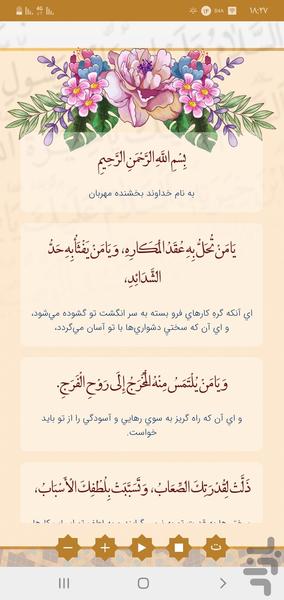 ۱۸:۲۷
بِسْمِ اللَّهِ الرَّحْمَنِ الرَّحِيمِ
به نام خداوند بخشنده مهربان
يَا مَنْ تُحَلُّ بِهِ عُقَدُ الْمَكَارِهِ، وَ يَا مَنْ يَفْثَأُ بِهِ حَدُّ
الشَّدَائِدِ،
اي آنكه گره كارهاي فرو بسته به سر انگشت تو گشوده مي‌شود،
و اي آن كه سختي دشواري‌ها با تو آسان مي‌گردد،
وَ يَا مَنْ يُلْتَمَسُ مِنْهُ الْمَخْرَجُ إِلَى رَوْحِ الْفَرَجِ.
و اي آن كه راه گريز به سوي رهايي و آسودگي را از تو بايد
خواست.
ذَلَّتْ لِقُدْرَتِكَ الصِّعَابُ، وَ تَسَبَّبَتْ بِلُطْفِكَ الْأَسْبَابُ،
ت
بازار